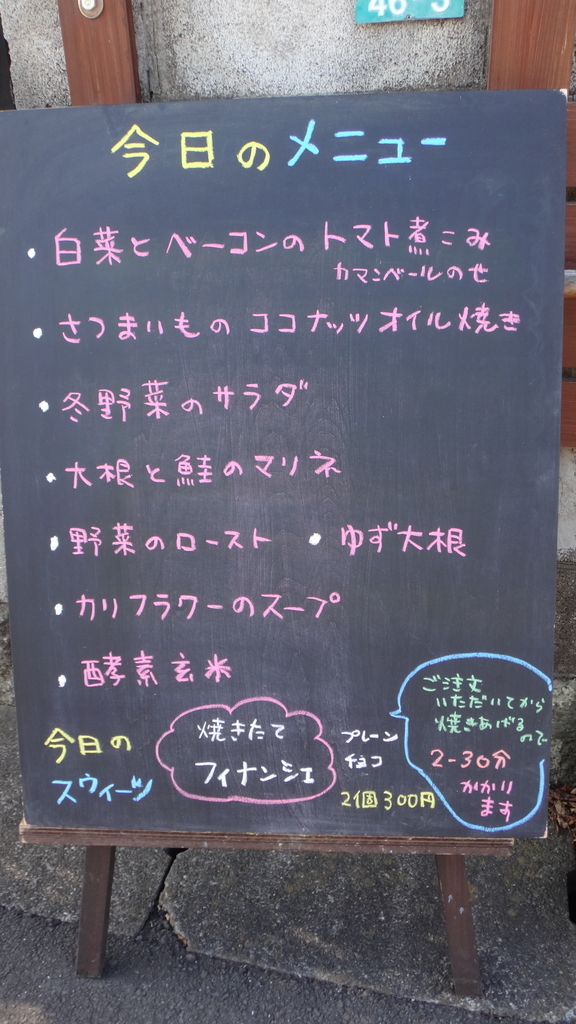 46 3
今日のメニュー
・白菜とベーコンのトマト煮こみ
カマンベールのせ
・さつまいものココナッツオイル焼き
・冬野菜のサラダ
・大根と鮭のマリネ
・野菜のロースト ・ゆず大根
・カリフラワーのスープ
・酵素玄米
今日の
スウィーツ
焼きたて
フィナンシェ
プレーン
チョコ
2個300円
ご注文
いただいてから
焼きあげる
ので
2-30分
かかり
ます